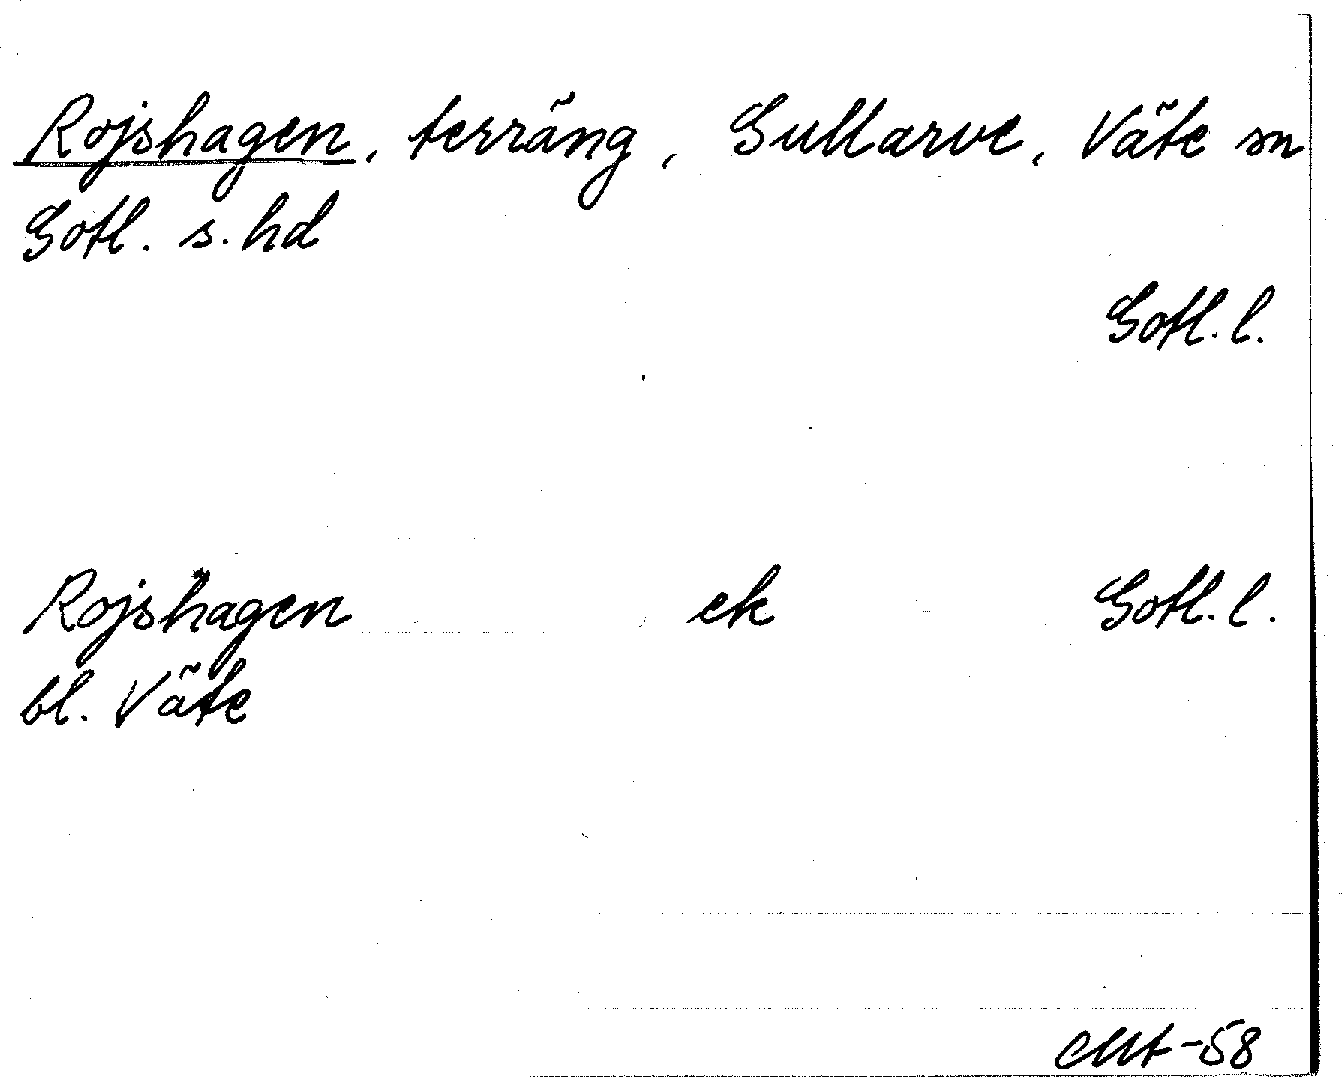 Rojshagen, terräng, Gullarve, Väte sn
Gotl. s. hd
Gotl. l.
Rojshagen ek Gotl. l.
bl. Väte
-58